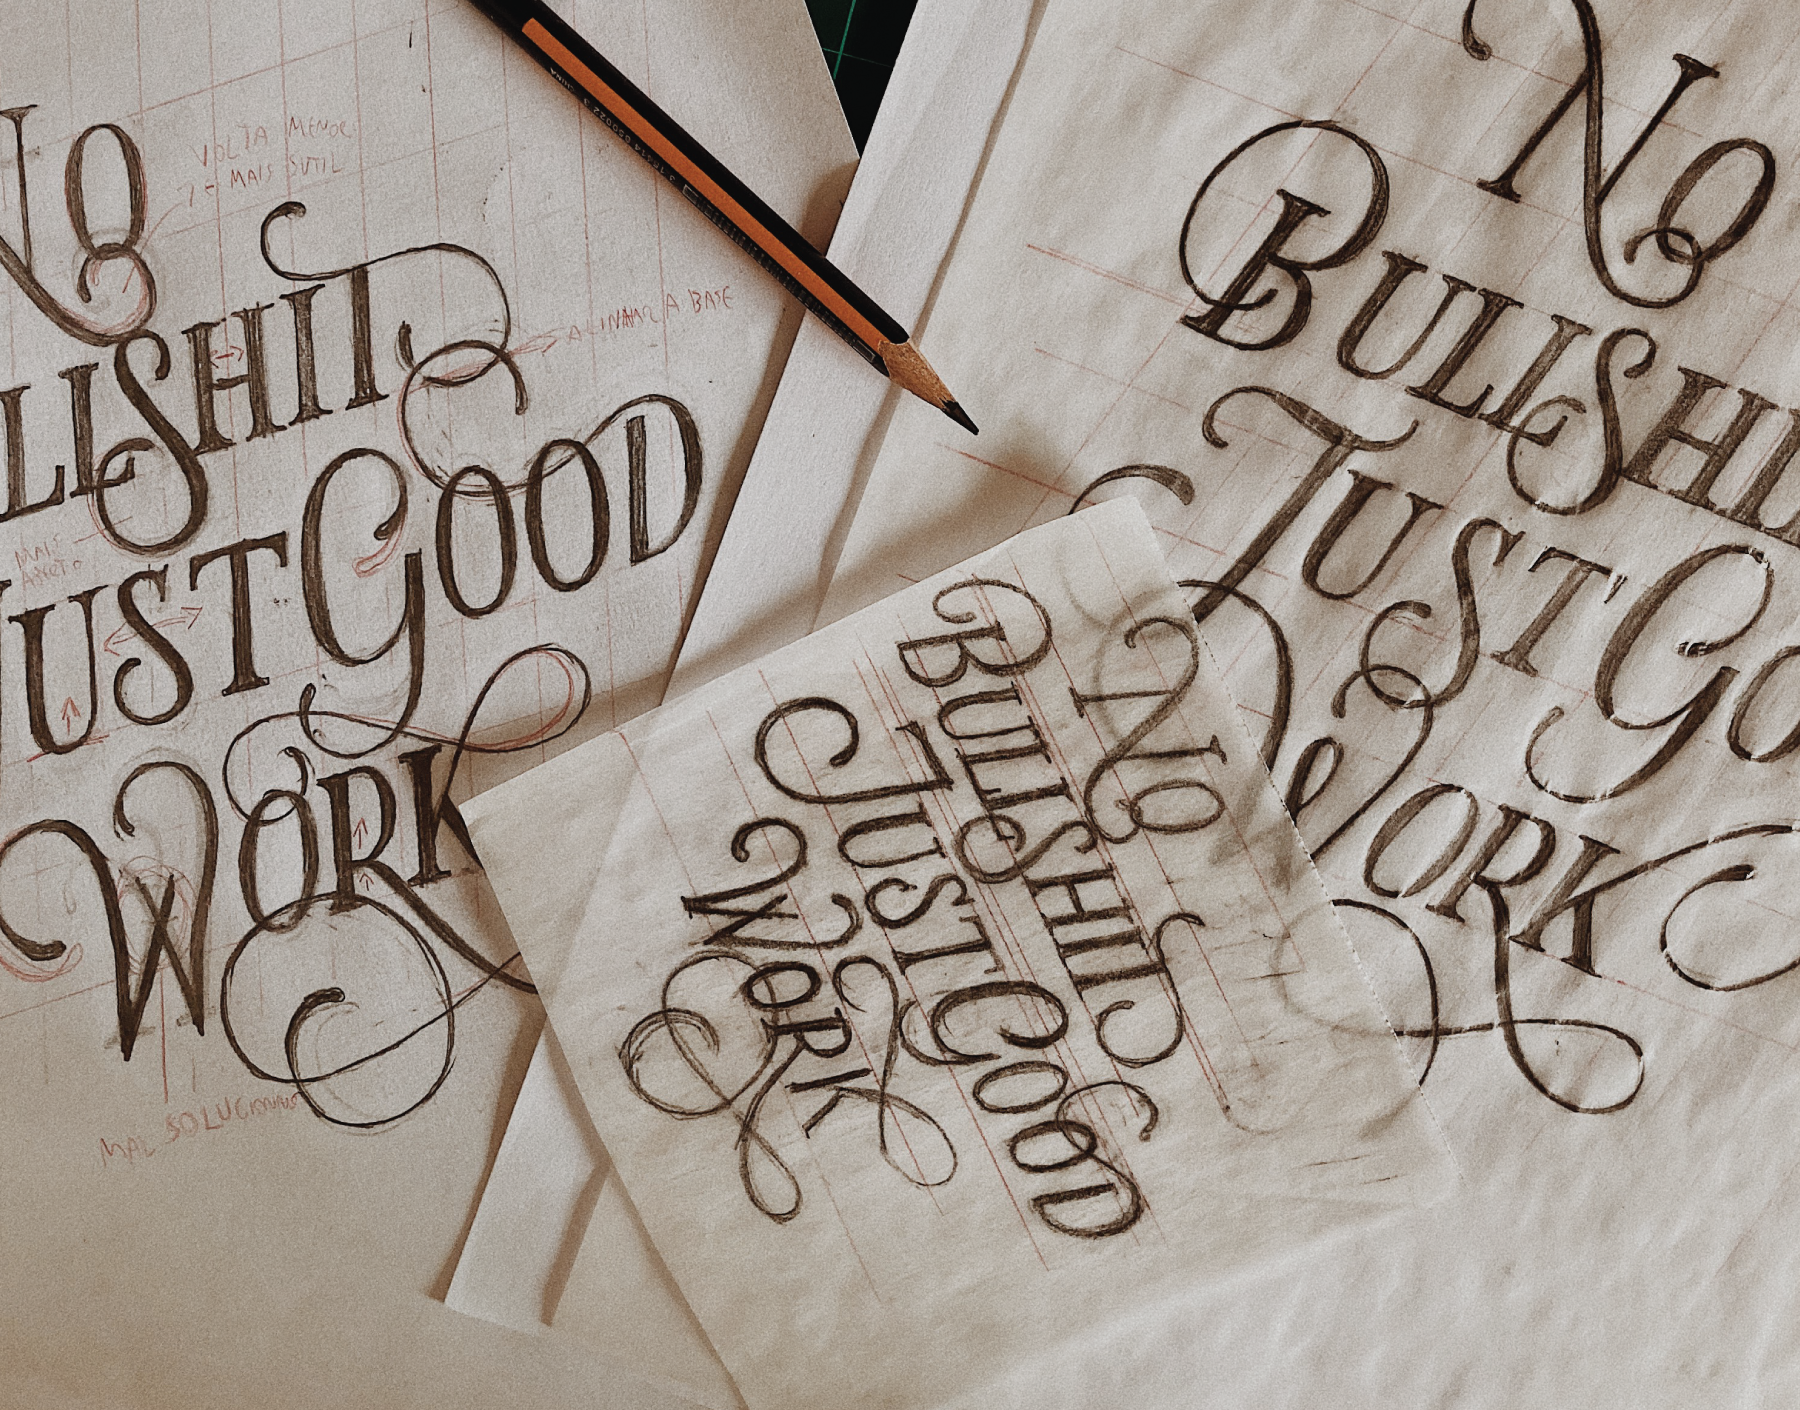 NO
VOLTA MENOR
E MAIS SUTIL
LLSHIT
ALINHAR A BASE
MAIS
ABERTO
JUST GOOD
WORK
MAL SOLUCIONADO
NO
BULLSHIT
JUST GOOD
WORK
NO
BULLSHI
JUST GO
WORK
CHINA